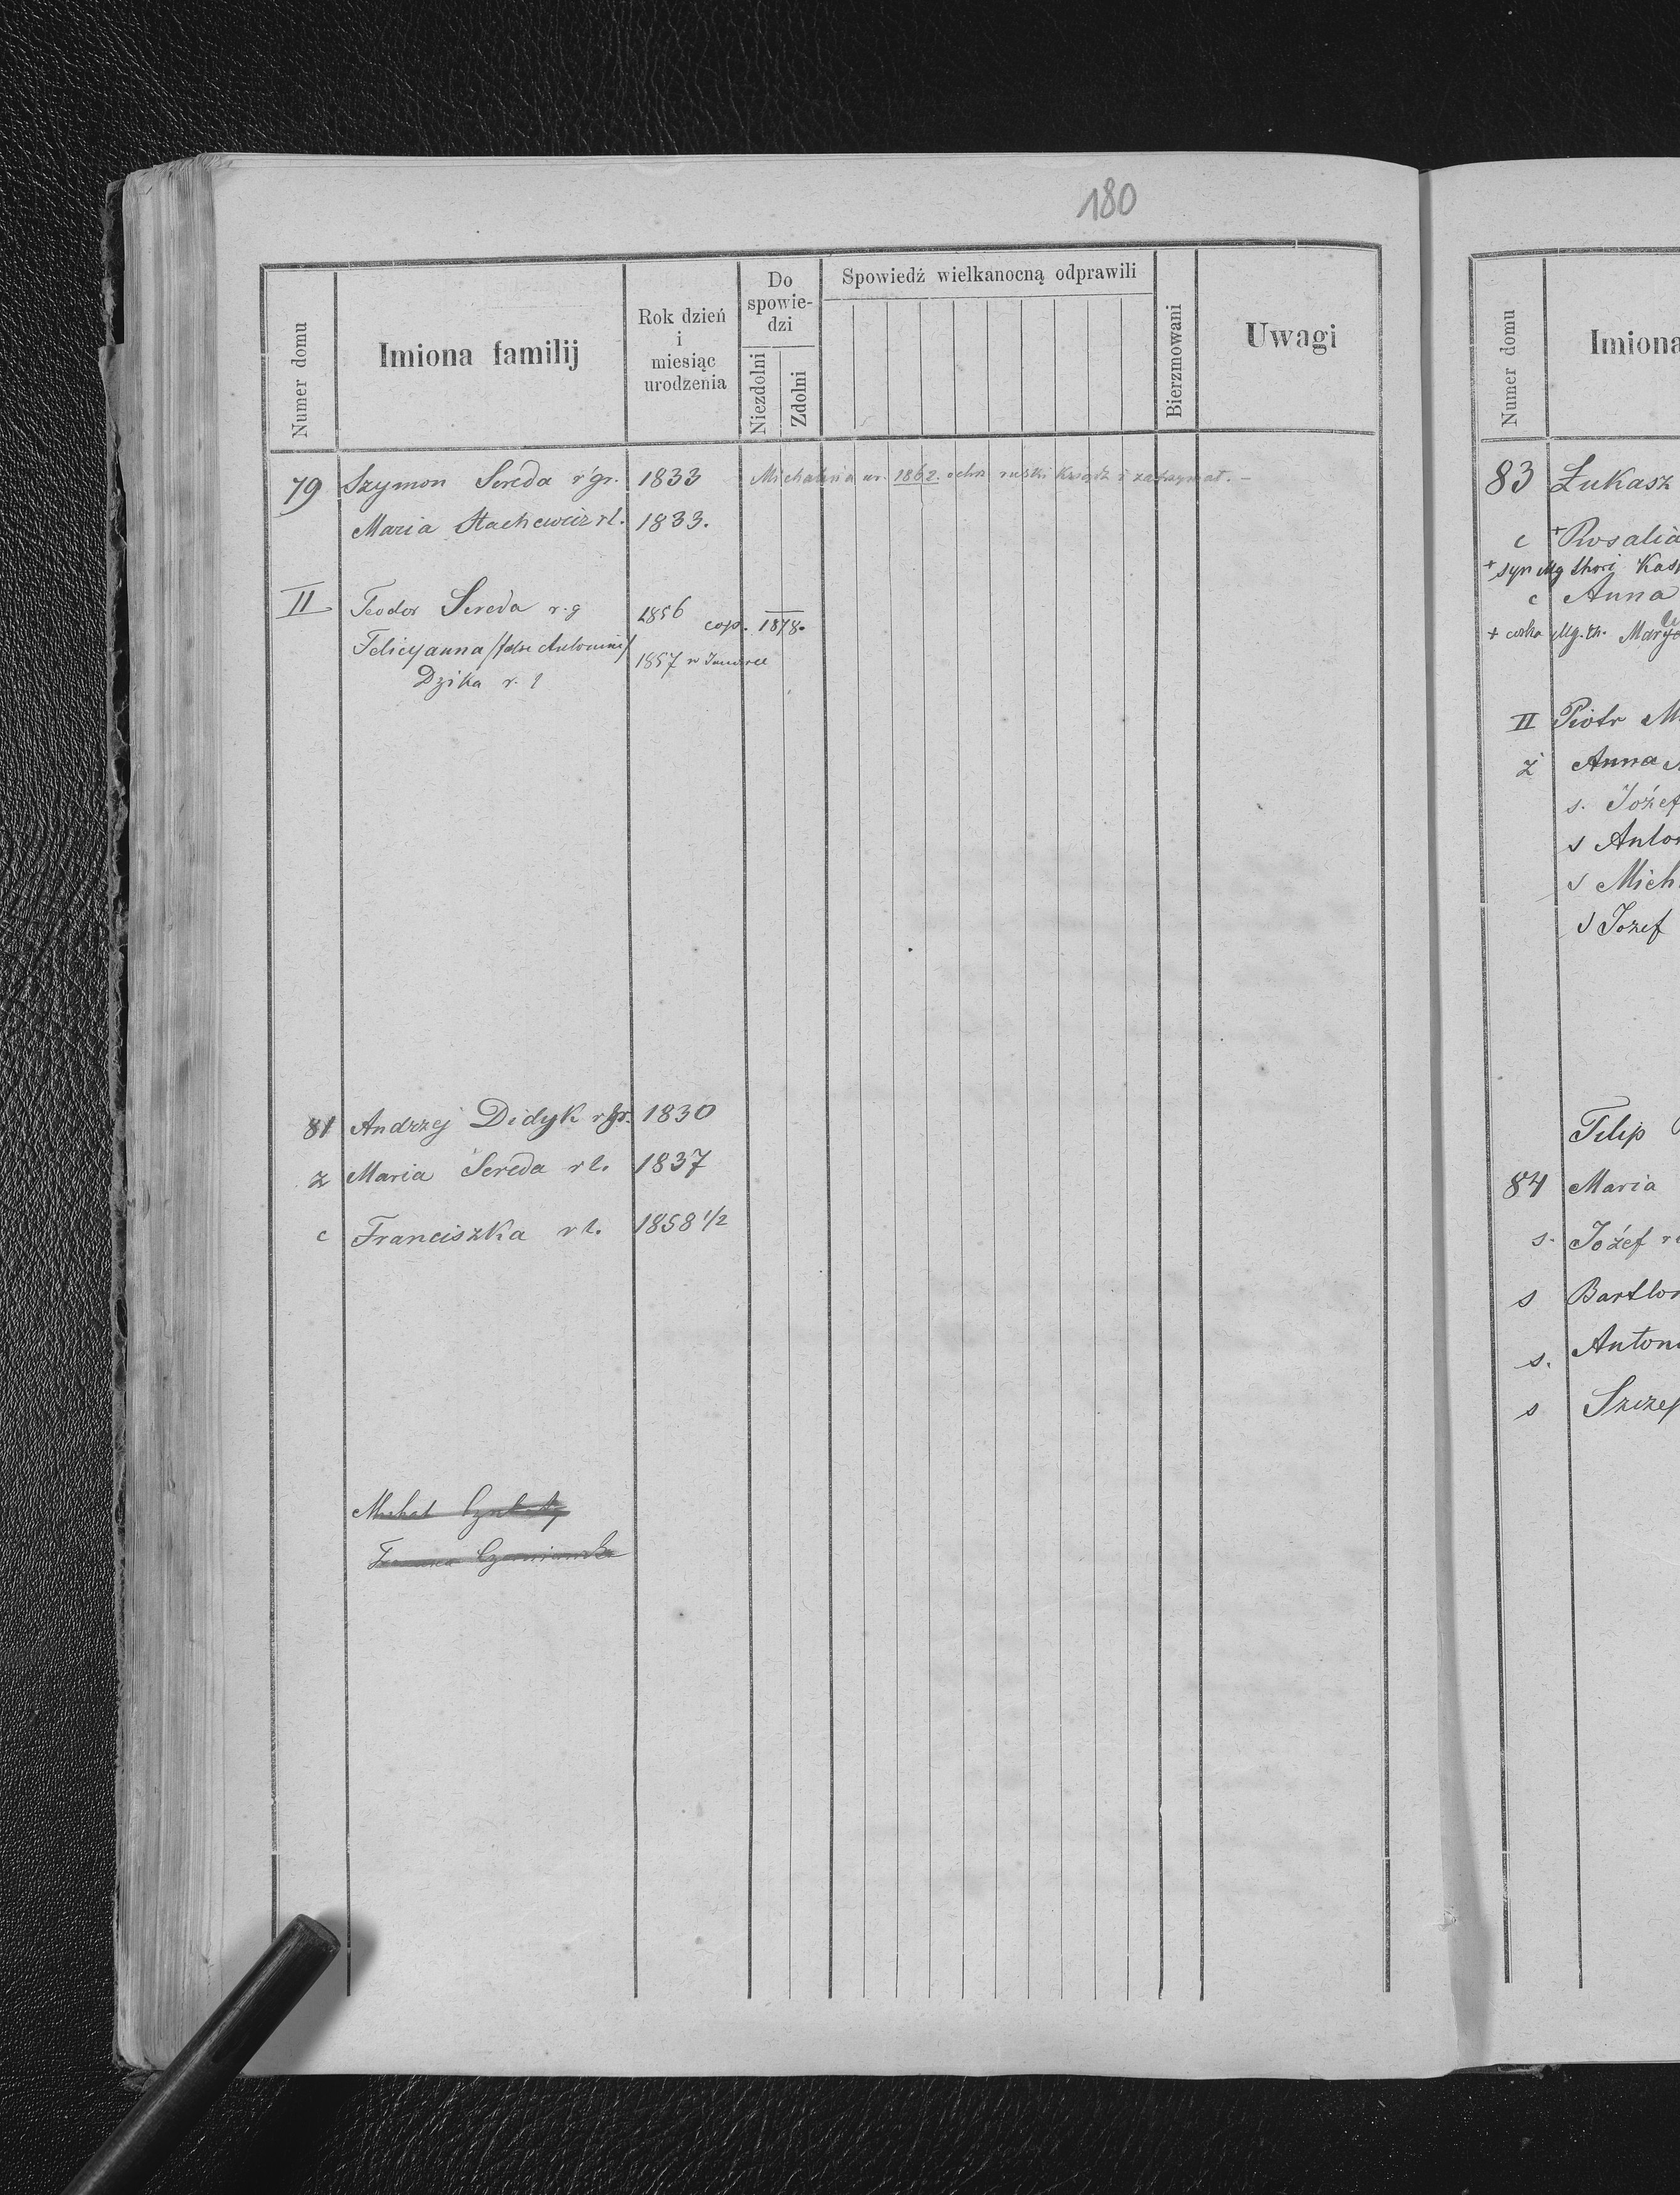 180
Numer domu
Imiona familij
Rok dzień
i
miesiąc
urodzenia
Do
spowie-
dzi
Niezdolni
Zdolni
Spowiedź wielkanocną odprawili
Bierzmowani
Uwagi
79 Szymon Sereda r gr. 1833 Michalina ur. 1862. ochrz ruski Ksiądz i zatrzymał. -
Maria Stachewicz rl. 1833.
II Teodor Sereda r.g 1856 cop. 1878.
Felicyanna /false Antonina/ 1857 w
Dzika r. l
81 Andrzej Didyk r gr. 1830
ż Maria Sereda rl. 1837
c Franciszka rl. 1858 1/2
Michał
Numer domu
Imiona
83 Łukasz
c + Rosalia
+ syn Mg
c Anna
+ córka Mg.
II Piotr M
ż Anna
s. Józef
s Anton
s Mich
s Jozef
Filip
84 Maria
s. Józef
s Bartłom
s. Antoni
s Szczep